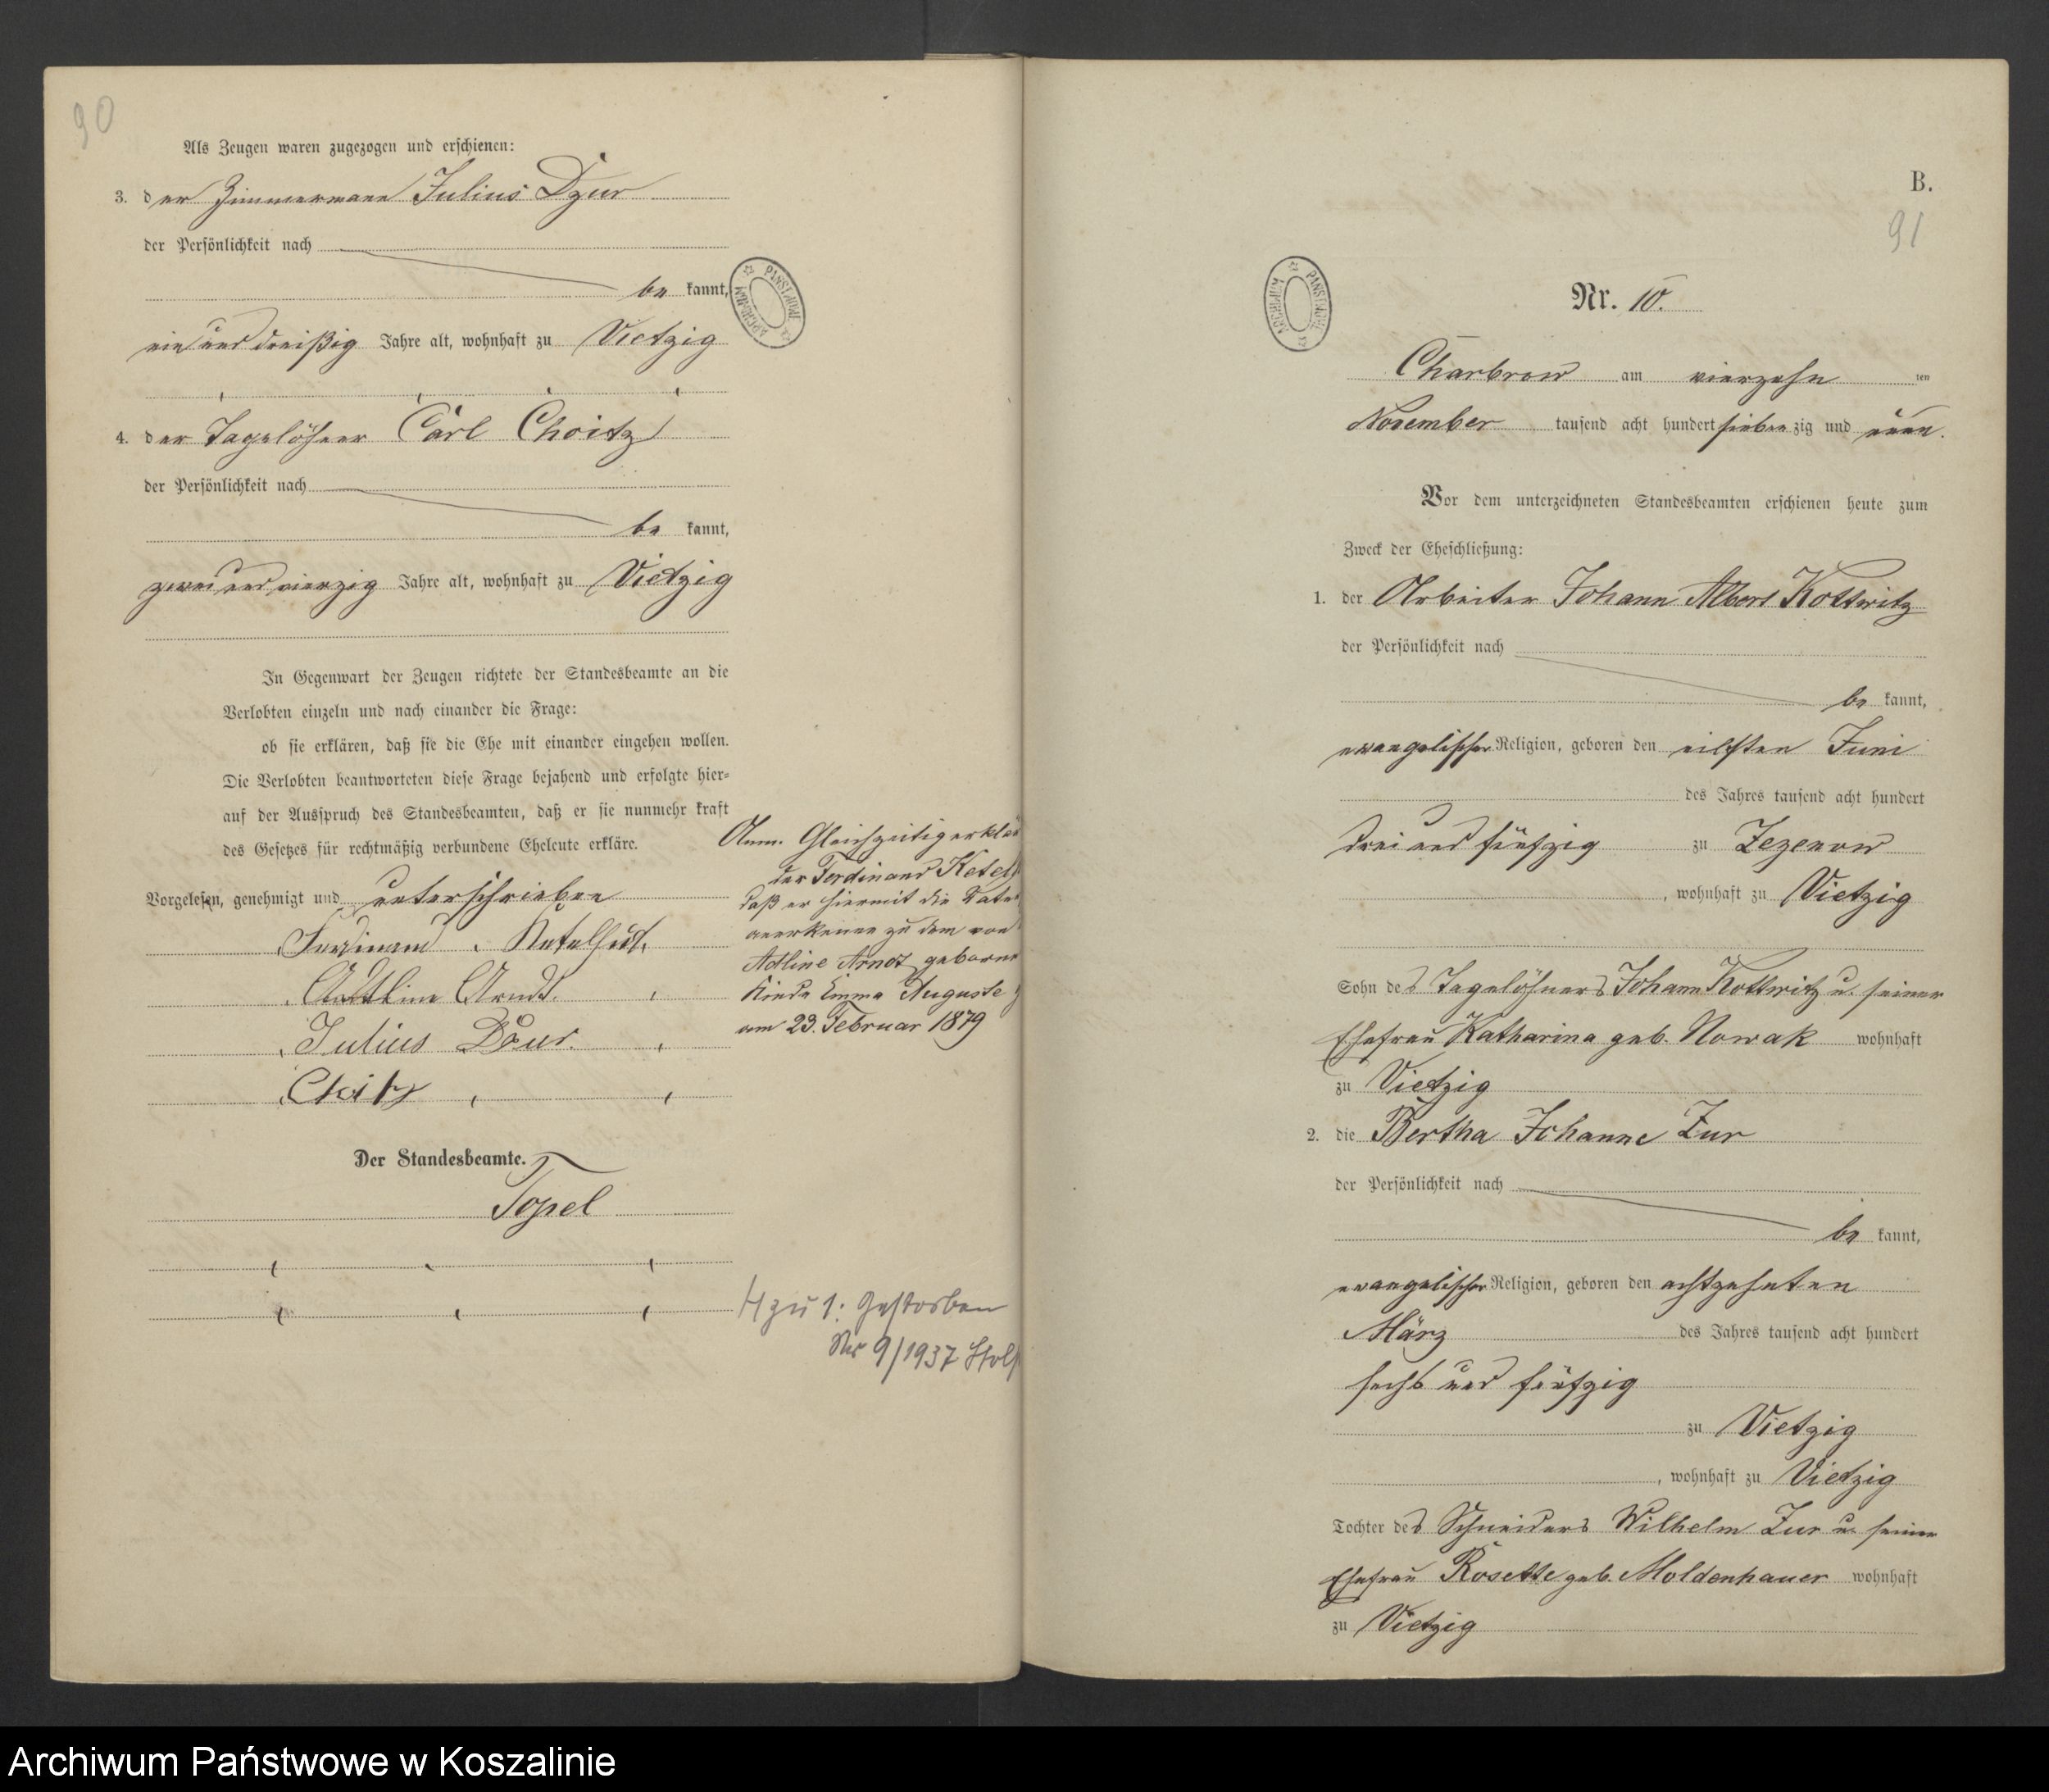 90
Als Zeugen waren zugezogen und erschienen:
3. der Zimmermann Julius Dzur
der Persönlichkeit nach
be kannt,
ein und dreißig Jahre alt, wohnhaft zu Vietzig
4. der Tagelöhner Carl Choitz
der Persönlichkeit nach
be kannt,
zwei und vierzig Jahre alt, wohnhaft zu Vietzig
In Gegenwart der Zeugen richtete der Standesbeamte an die
Verlobten einzeln und nach einander die Frage:
ob sie erklären, daß sie die Ehe mit einander eingehen wollen.
Die Verlobten beantworteten diese Frage bejahend und erfolgte hier=
auf der Ausspruch des Standesbeamten, daß er sie nunmehr kraft
des Gesetzes für rechtmäßig verbundene Eheleute erkläre.
Vorgelesen, genehmigt und unterschrieben
Ferdinand Ketelhut
Adtline Arndt.
Julius
Choitz
Der Standesbeamte.
Topel
Anm. Gleichzeitig erklär
der Ferdinand Ketelh
daß er hiermit die Vater
anerkenne zu dem von
Adline Arndt geborne
Kinde Emma Auguste
am 23. Februar 1879
H zu 1: Gestorben
Nr 9/1937 Stolp
ARCHIWUM PAŃSTWOWE
B.
91
ARCHIWUM PAŃSTWOWE
Nr. 10.
Charbrow am vierzehn ten
November tausend acht hundert sieben zig und neun.
Vor dem unterzeichneten Standesbeamten erschienen heute zum
Zweck der Eheschließung:
1. der Arbeiter Johann Albert Kottwitz
der Persönlichkeit nach
be kannt,
evangelischer Religion, geboren den eilften Juni
des Jahres tausend acht hundert
drei und fünfzig zu Zezenow
, wohnhaft zu Vietzig
Sohn des Tagelöhners Johann Kottwitz u. seiner
Ehefrau Katharina geb. Nowak wohnhaft
zu Vietzig
2. die Bertha Johanne Zur
der Persönlichkeit nach
be kannt,
evangelischer Religion, geboren den achtzehnten
März des Jahres tausend acht hundert
sechs und fünfzig
zu Vietzig
, wohnhaft zu Vietzig
Tochter des Schneiders Wilhelm Zur u. seiner
Ehefrau Rosette geb. Moldenhauer wohnhaft
zu Vietzig
Archiwum Państwowe w Koszalinie